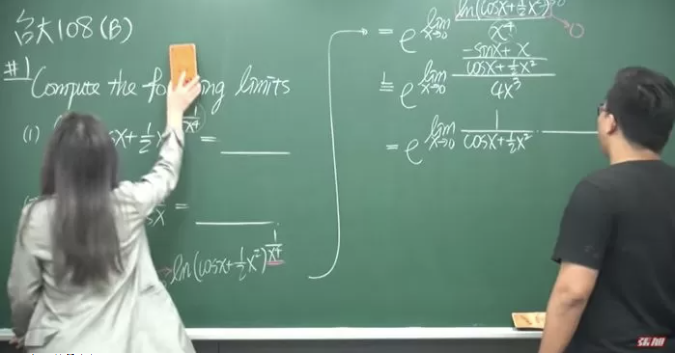 台大108(B)
#1 Compute the fo ing limits
(1) sx+½x )^(1/x⁴) = ____
= ____
ln(cosx+½x²)^(1/x⁴)
= e^(lim x→0 ln(cosx+½x²)→0 / x⁴→0)
L= e^(lim x→0 ((-sinx+x)/(cosx+½x²)) / 4x³)
= e^(lim x→0 1/(cosx+½x²) · ____
張旭